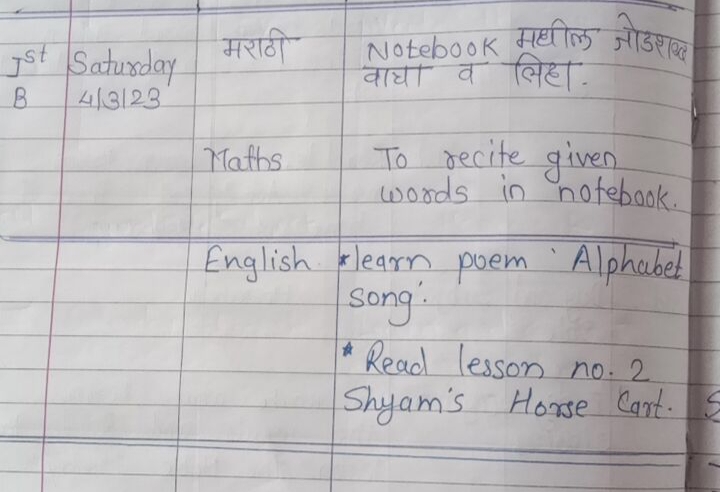 Ist Saturday मराठी Notebook मधील जोडशब्द
B 4/3/23 वाचा व लिहा.
Maths To recite given
words in notebook.
English *learn poem 'Alphabet
song'.
* Read lesson no. 2
Shyam's Horse Cart.